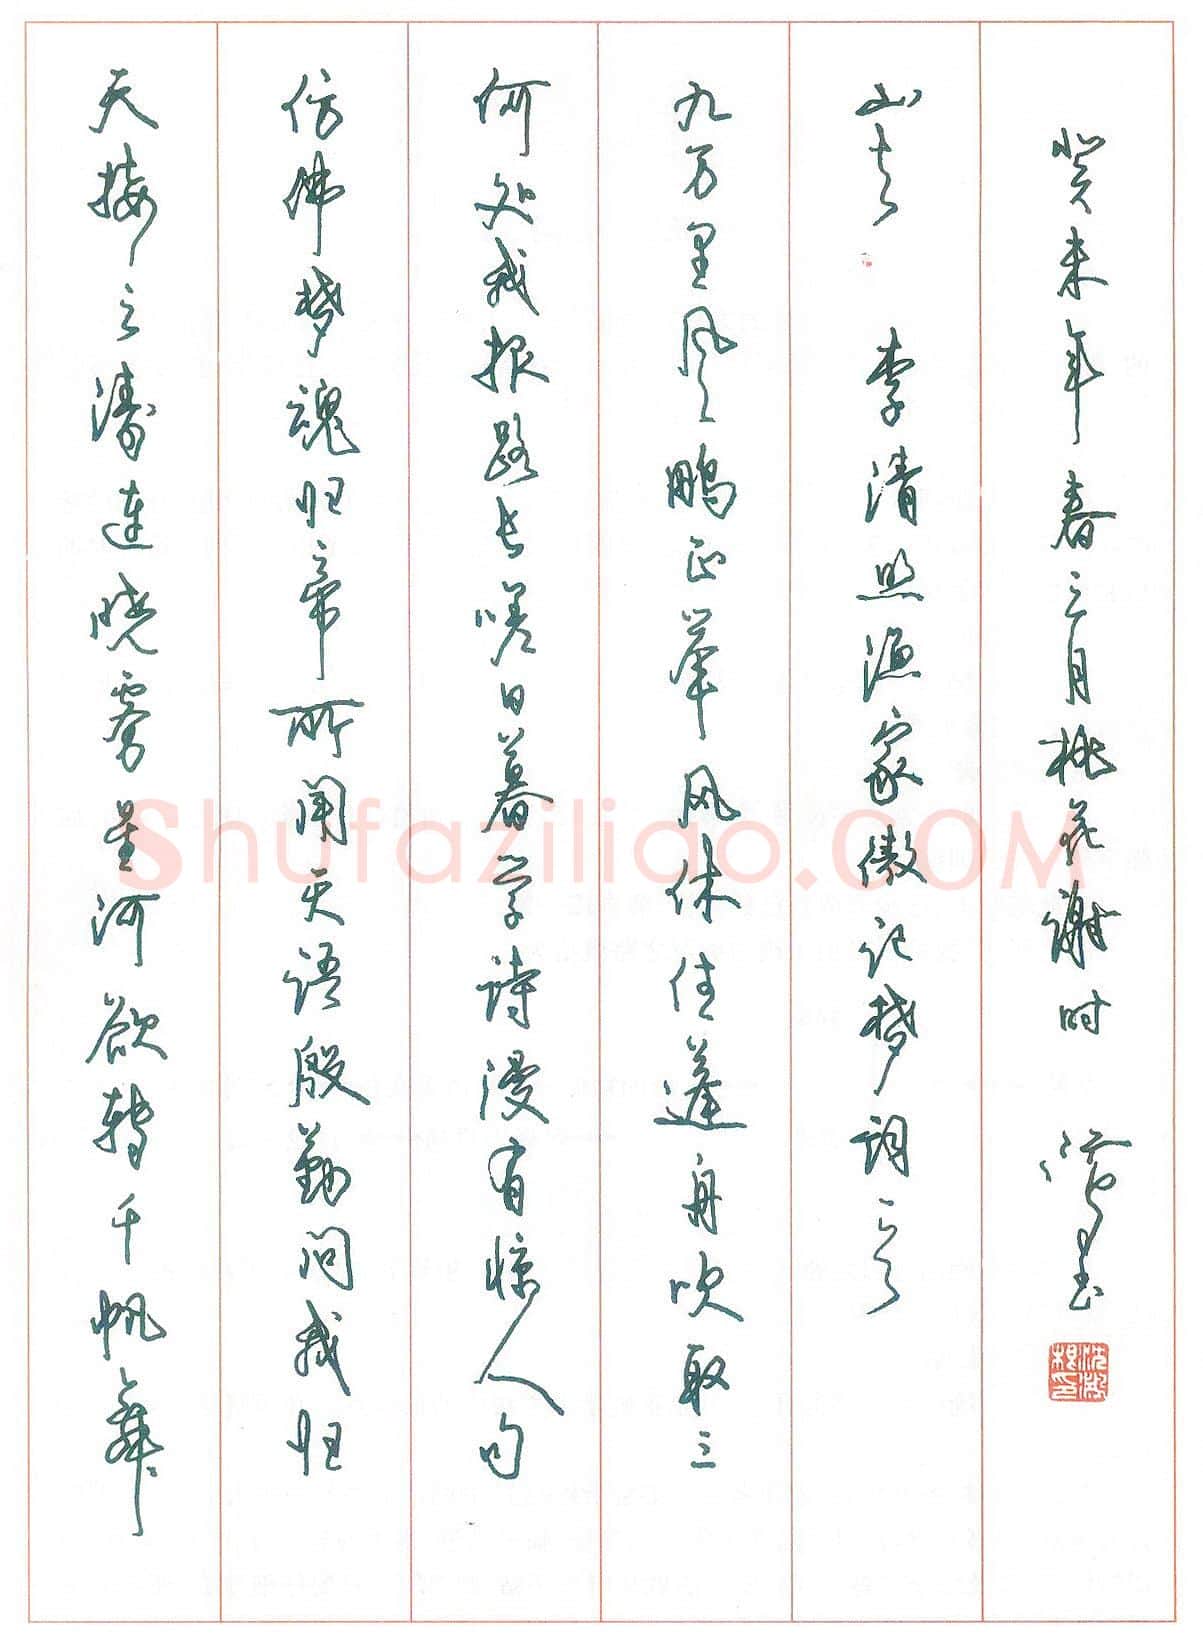 天接云涛连晓雾星河欲转千帆舞
仿佛梦魂归帝所闻天语殷勤问我归
何处我报路长嗟日暮学诗漫有惊人句
九万里风鹏正举风休住蓬舟吹取三
山去 李清照渔家傲记梦词一首
癸未年春三月桃花谢时
沈鸿根印
Shufaziliao.COM